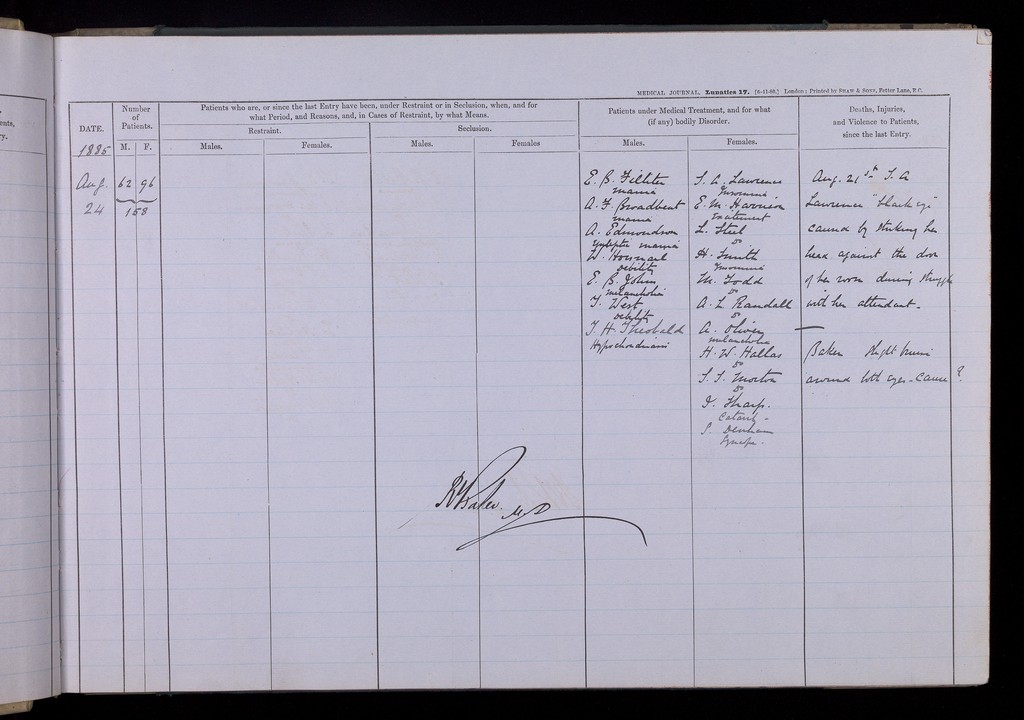 MEDICAL JOURNAL. Lunatics 17. [9-11-80.] London: Printed by SHAW & SONS, Fetter Lane, E.C.
DATE.
Number
of
Patients.
Patients who are, or since the last Entry have been, under Restraint or in Seclusion, when, and for
what Period, and Reasons, and, in Cases of Restraint, by what Means.
Patients under Medical Treatment, and for what
(if any) bodily Disorder.
Deaths, Injuries,
and Violence to Patients,
since the last Entry.
Restraint.
Seclusion.
1885
M.
F.
Males.
Females.
Males.
Females
Males.
Females.
Aug.
24
62 96
158
E. B. Filliter
mania
A. F. Broadbent
mania
A. Edmondson
Epileptic mania
W. Horsnail
debility
E. B. John
melancholia
T. West
debility
T. H. Theobald
Hypochondriasis
S. A. Lawrence
Insomnia
E. M. Harrison
Excitement
L. Steel
Do
H. Smith
Insomnia
M. Todd
Do
A. L. Randall
Do
A. Oliver
melancholia
H. W. Hallas
Do
S. S. Morton
Do
Sharp.
Catarrh -
S. Denham
Aug. 21st S. A
Lawrence "black eye"
caused by striking her
head against the door
of her room during struggle
with her attendant.
Baker slight bruise
around both eyes - Cause?
R Baker. M D